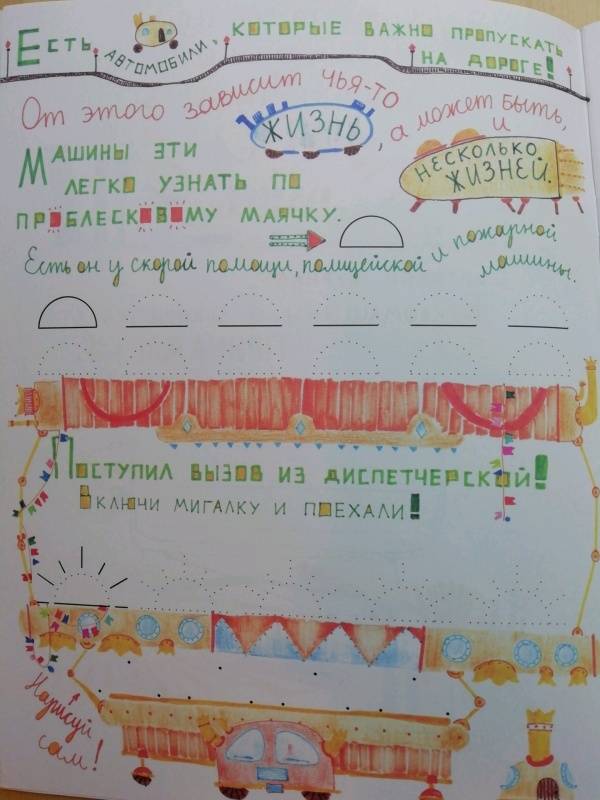 Есть автомобили, которые важно пропускать
на дороге!
От этого зависит чья-то жизнь, а может быть,
и
несколько
жизней.
Машины эти
легко узнать по
проблесковому маячку.
Есть он у скорой помощи, полицейской и пожарной
машины.
Поступил вызов из диспетчерской!
Включи мигалку и поехали!
Нарисуй
сам!